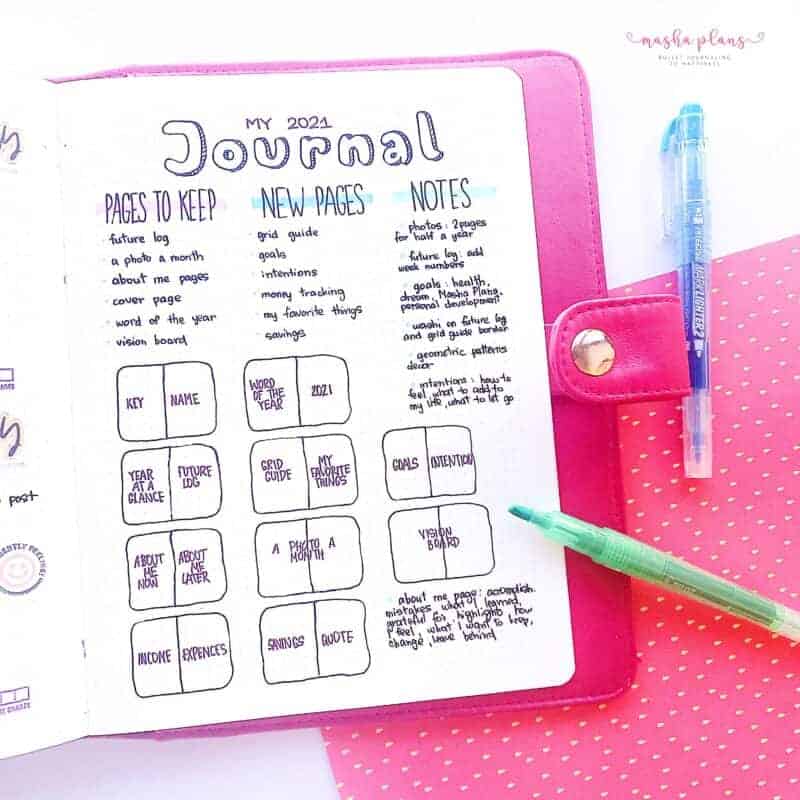 masha plans
BULLET JOURNALING
TO HAPPINESS
MY 2021
Journal
PAGES TO KEEP
future log
a photo a month
about me pages
cover page
word of the year
vision board
NEW PAGES
grid guide
goals
intentions
money tracking
my favorite things
savings
NOTES
photos: 2pages
for half a year
future log: add
week numbers
goals: health,
dream, Masha Plans,
personal development
washi on future log
and grid guide border
geometric patterns
decor
intentions: how to
feel, what to add to
my life, what to let go
KEY
NAME
WORD
OF THE
YEAR
2021
YEAR
AT A
GLANCE
FUTURE
LOG
GRID
GUIDE
MY
FAVORITE
THINGS
GOALS
INTENTION
ABOUT
ME
NOW
ABOUT
ME
LATER
A PHOTO A
MONTH
VISION
BOARD
INCOME
EXPENCES
SAVINGS
QUOTE
about me page: accomplish.
mistakes what I learned,
grateful for, highlights, how
I feel, what I want to keep,
change, leave behind
post